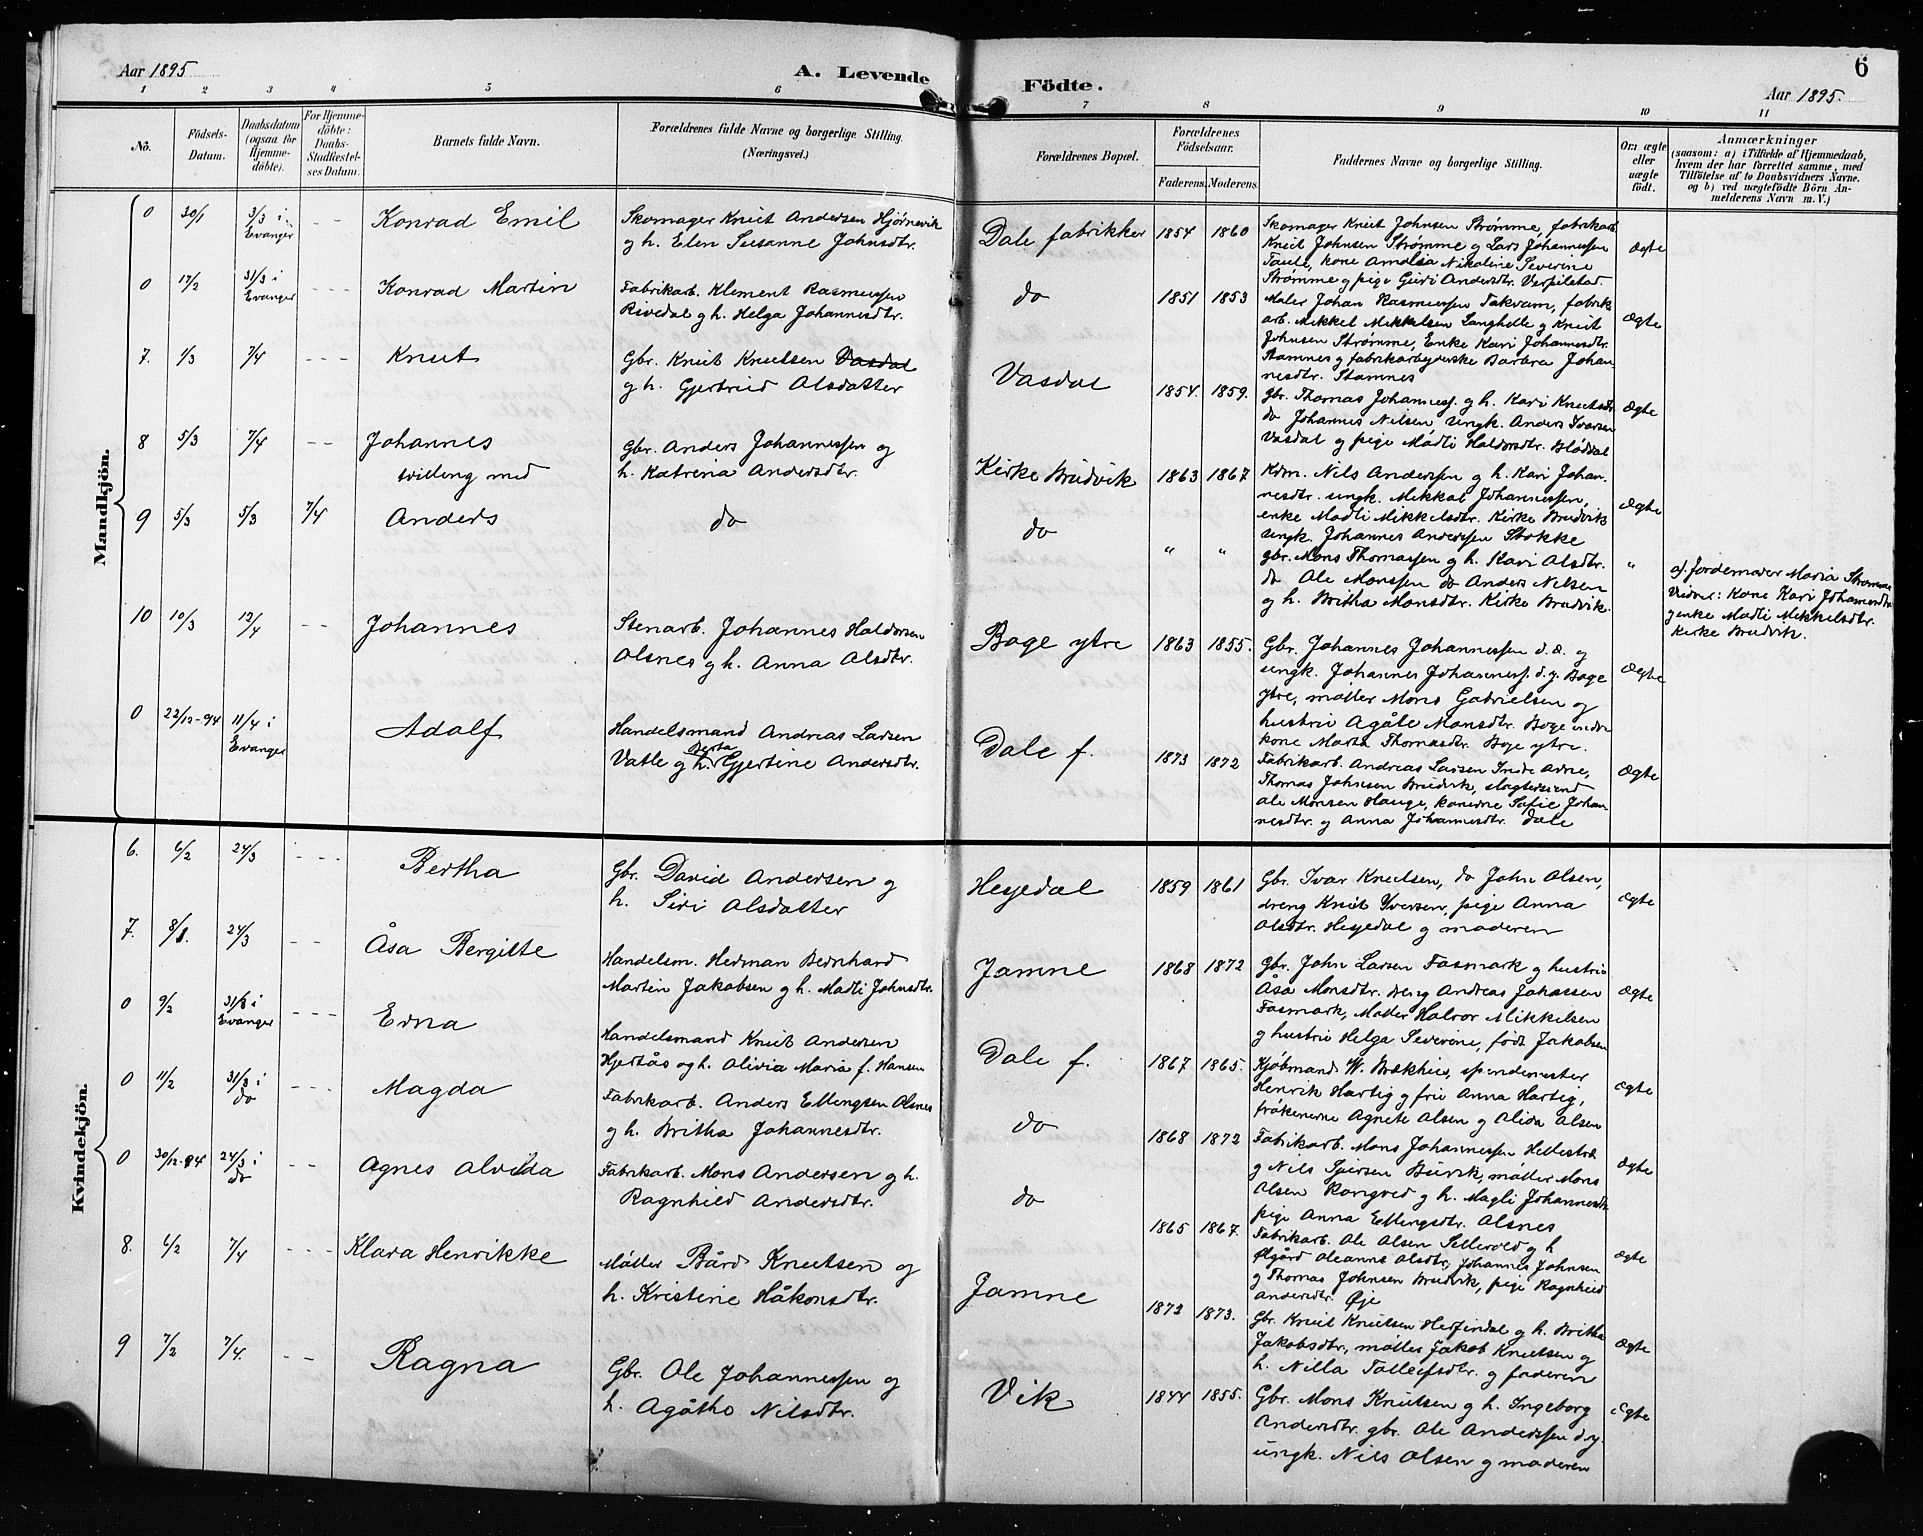 Aar 1895
A. Levende
Födte.
6
Aar 1895.
1 2 3 4 5 6 7 8 9 10 11
No.
Födsels-
Datum.
Daabsdatum
(ogsaa för
Hjemme-
döbte).
For Hjemme-
döbte:
Daabs-
Stadfæstel-
ses Datum.
Barnets fulde Navn.
Forældrenes fulde Navne og borgerlige Stilling.
(Næringsvei.)
Forældrenes Bopæl.
Forældrenes
Födselsaar.
Faderens. Moderens.
Faddernes Navne og borgerlige Stilling.
Om ægte
eller
uægte
födt.
Anmærkninger
(saasom: a) i Tilfælde af Hjemmedaab,
hvem der har forrettet samme, med
Tilföielse af to Daabsvidners Navne.
og b) ved uægtefödte Börn An-
melderens Navn m. V.)
Mandkjön.
0 30/1 3/3 i Evanger - - Konrad Emil
Skomager Knut Andersen Hjørnevik
og h. Elen Susanne Johnsdtr.
Dale fabrikker 1854 1860
Skomager Knut Johnsen Strømme, fabrikarb.
Knut Johnsen Strømme og Lars Johannessen
Taule, kone Amalia Nikoline Severine
Strømme og pige Guri Andersdtr. Verpilstad.
Ægte
0 17/2 31/3 i Evanger - - Konrad Martin
Fabrikarb. Klement Rasmussen
Risedal og h. Helga Johannesdtr.
do 1851 1853
Maler Johan Rasmussen Takvam, fabrik
arb. Mikkel Mikkelsen Langhelle og Knut
Johnsen Strømme, Enke Kari Johannesdtr.
Stamnes og fabrikarbeyderske Barbra Johan-
nesdtr. Stamnes
Ægte
7. 1/3 7/4 - - - Knut
Gbr. Knut Knutsen Vasdal
og h. Gjertrud Olsdatter
Vasdal 1854. 1859.
Gbr. Thomas Johanness. og h. Kari Knutsdtr.
do Johannes Nilsen, Ungk. Anders Ivarsen
Vasdal og pige Madli Haldorsdtr. Bløddal
Ægte
8 5/3 7/4 - - Johannes
tvilling med
Gbr. Anders Johannessen og
h. Katrina Andersdtr.
Kirke Brudvik 1863 1867
Kdm. Nils Anderssen og h. Kari Johan-
nesdtr. ungk. Mikkal Johannessen,
enke Madli Mikkelsdtr. Kirke Brudvik
Ægte
9 5/3 5/3 7/4 Anders
do
do " "
Ungk. Johannes Anderssen Stokke
gbr. Mons Thomassen og h. Kari Olsdtr.
do Ole Monssen do Anders Nilsen
og h. Britha Monsdtr. Kirke Brudvik.
"
a). Jordemoder Maria Strømme
Vidner: Kone Kari Johannesdtr.
og enke Madli Mikkelsdtr.
Kirke Brudvik.
10 10/3 12/4 - - Johannes
Stenarb. Johannes Haldorsen
Olsnes og h. Anna Olsdtr.
Boge ytre 1863 1855.
Gbr. Johannes Johannessen d.æ. og
ungk. Johannes Johanness. d.y. Boge
ytre, møller Mons Gabrielsen og
hustru Agåte Monsdtr. Boge indre
kone Marta Thomasdtr. Boge ytre.
Ægte
0 22/12-94 11/4 i Evanger Adolf
Handelsmand Andreas Larsen
Vatle og h. Berta Gjertine Andersdtr.
Dale f. 1873 1872
Fabrikarb. Andreas Larsen Indre Arne,
Thomas Johnsen Brudvik, slagtersvend
Ole Monsen Hauge, konerne Sofie Johan-
nesdtr. og Anna Johannesdtr. Dale
Ægte
Kvindekjön.
6. 6/2 24/3 - - - Bertha
Gbr. David Andersen og
h. Siri Olsdatter
Hesjedal 1859 1861
Gbr. Ivar Knutsen, do John Olsen,
dreng Knut Iversen, pige Anna
Olsdtr. Hesjedal og moderen
Ægte
7. 8/1. 24/3 - - Åsa Bergitte
Handelsm. Herman Bernhard
Martin Jakobsen og h. Madli Johnsdtr.
Jamne 1868 1872
Gbr. John Larsen Fasmark og hustru
Åsa Monsdtr. dreng Andreas Johassen
Fasmark, Møller Halvor Mikkelsen
og hustru Helga Severine, født Jakobsen
Ægte
0 9/2 31/3 i Evanger - - - Erna
Handelsmand Knut Andersen
Hjertås og h. Olivia Maria f. Hansen
Dale f. 1867 1865.
Kjøbmand W. Brækhus, spindemester
Henrik Hartig og fru Anna Hartig,
frøkenerne Agnete Olsen og Alida Olsen
Ægte
0 11/2 31/3 i do - - Magda
Fabrikarb. Anders Ellingsen Olsnes
og h. Britha Johannesdtr.
do 1868 1872
Fabrikarb. Mons Johannessen Hellestræ
og Nils Sjursen Burvik, møller Mons
Olsen Rongved og h. Magli Johannesdtr.
pige Anna Ellingsdtr. Olsnes
Ægte
0 30/12-94 24/3 i do - - Agnes Alvida
Fabrikarb. Mons Andersen og h.
Ragnhild Andersdtr.
do 1865 1867.
Fabrikarb. Ole Olsen Sellevold og h
Ølgård Oleanne Olsdtr, Johannes Johnsen
og Thomas Johnsen Brudvik, pige Ragnhild
Andersdtr. Øje
Ægte
8. 6/2 7/4 - - - Klara Henrikke
Møller Bård Knutsen og
h. Kristine Håkonsdtr.
Jamne 1873 1873.
Gbr. Knut Knutsen Herfindal og h. Britha
Jakobsdtr., møller Jakob Knutsen og
h. Nilla Tollefsdtr. og faderen
Ægte
9 7/2 7/4. - - Ragna
Gbr. Ole Johannessen og
h. Agåtho Nilsdtr.
Vik 1844 1855.
Gbr. Mons Knutsen og h. Ingeborg
Andersdtr. gbr. Ole Anderssen d.y.
ungk. Nils Olsen og moderen
Ægte